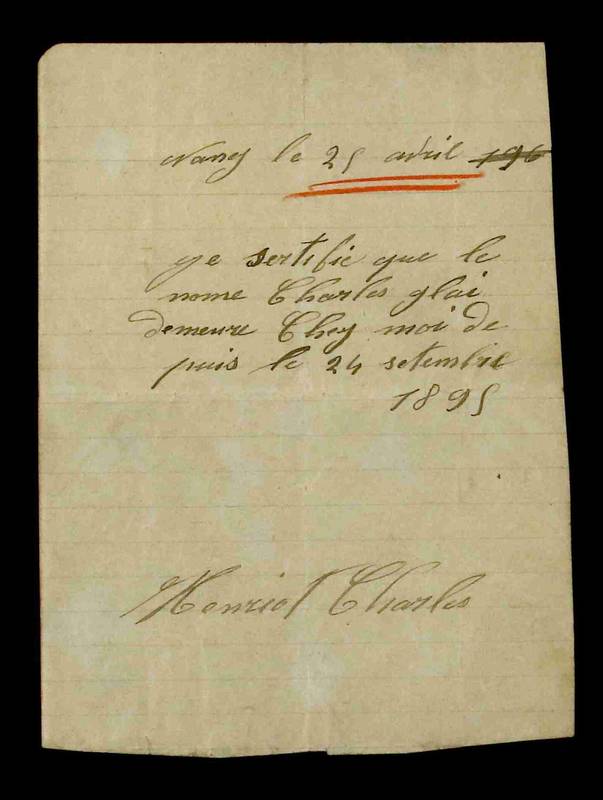 Nancy le 25 avril 196
ye sertifie que le
nome Charles glai
demeure Chey moi de
puis le 24 setembre
1895
Henriot Charles